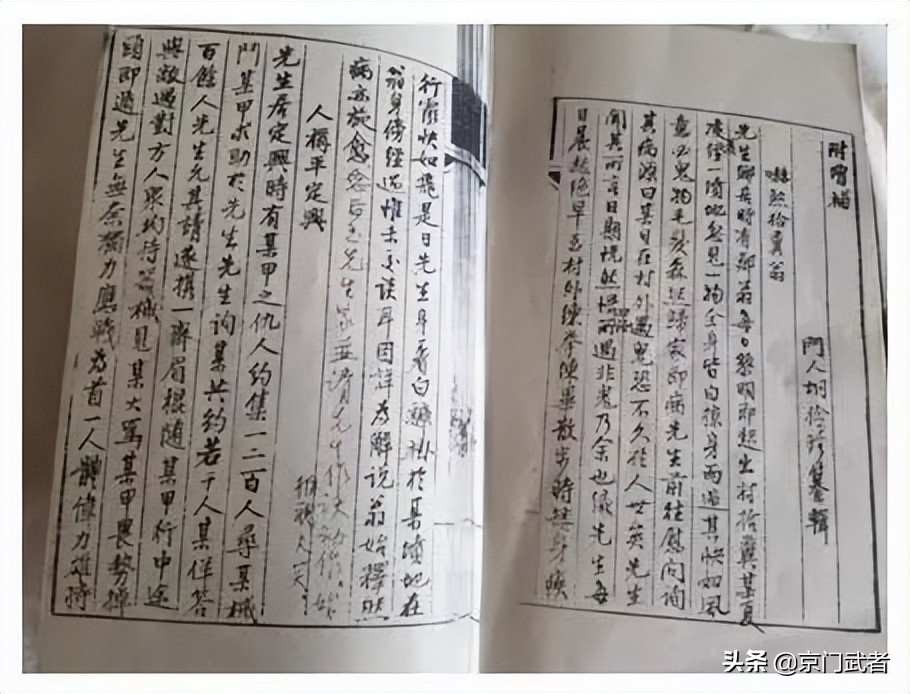 附增補
門人胡　　纂輯
嚇煞拾糞翁
先生鄉居時有鄰翁每日黎明即起出村拾糞某夏
凌晨經一墳地忽見一物全身皆白掠身而過其快如風
意必鬼物毛髮森然歸家即病先生前往慰問詢
其病源曰某日在村外遇鬼恐不久於人世矣先生
聞其所言日期恍然悟所遇非鬼乃余也緣先生每
日晨起絕早至村外練拳練畢散步時無身
行寔快如飛是日先生身着白　　於某墳地在
翁身傍經過惟未交談耳因詳為解說翁始釋然
病亦旋愈
人稱平定興
先生居定興時有某甲之仇人約集一二百人尋某械
鬥某甲求助於先生先生詢某共約若干人某佯答
百餘人先生允其請遂攜一齊眉棍隨某甲行中途
與敵遇對方人眾約持器械見某大罵某甲畏勢掉
頭即遁先生無奈獨力應戰為首一人體偉力雄持
头条 @京门武者